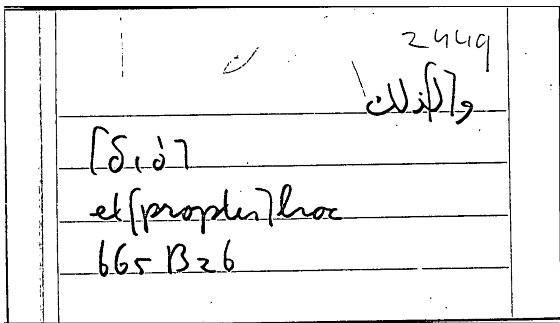 2449
و[لذلك]
[δι' ὃ]
et [propter] hoc
665 B26